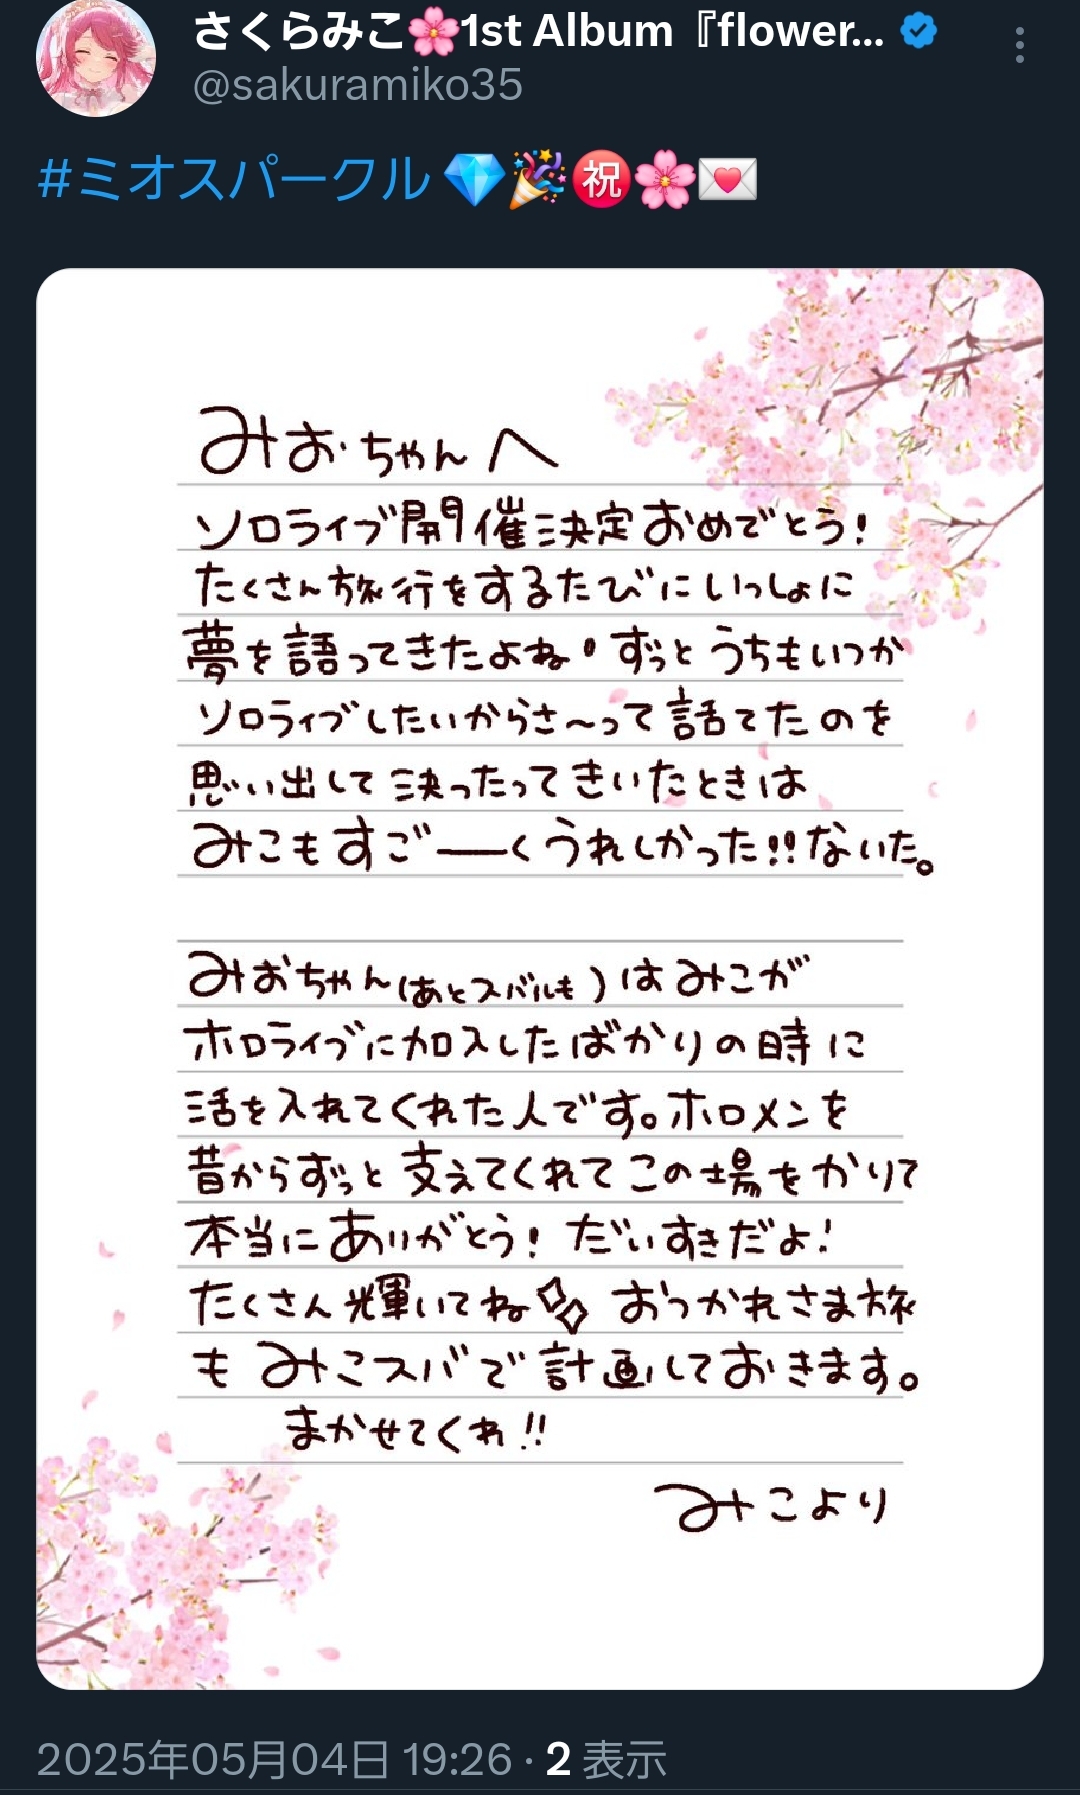 さくらみこ🌸1st Album『flower...
@sakuramiko35
#ミオスパークル💎🎉㊗️🌸💌
みおちゃんへ
ソロライブ開催決定おめでとう!
たくさん旅行をするたびにいっしょに
夢を語ってきたよね!ずっとうちもいつか
ソロライブしたいからさ〜って話てたのを
思い出して決ったってきいたときは
みこもすごーーくうれしかった!!ないた。
みおちゃん(あとスバルも)はみこが
ホロライブに加入したばかりの時に
活を入れてくれた人です。ホロメンを
昔からずっと支えてくれてこの場をかりて
本当にありがとう!だいすきだよ!
たくさん輝いてね おつかれさま旅
もみこスバで計画しておきます。
まかせてくれ!!
みこより
2025年05月04日 19:26 · 2 表示